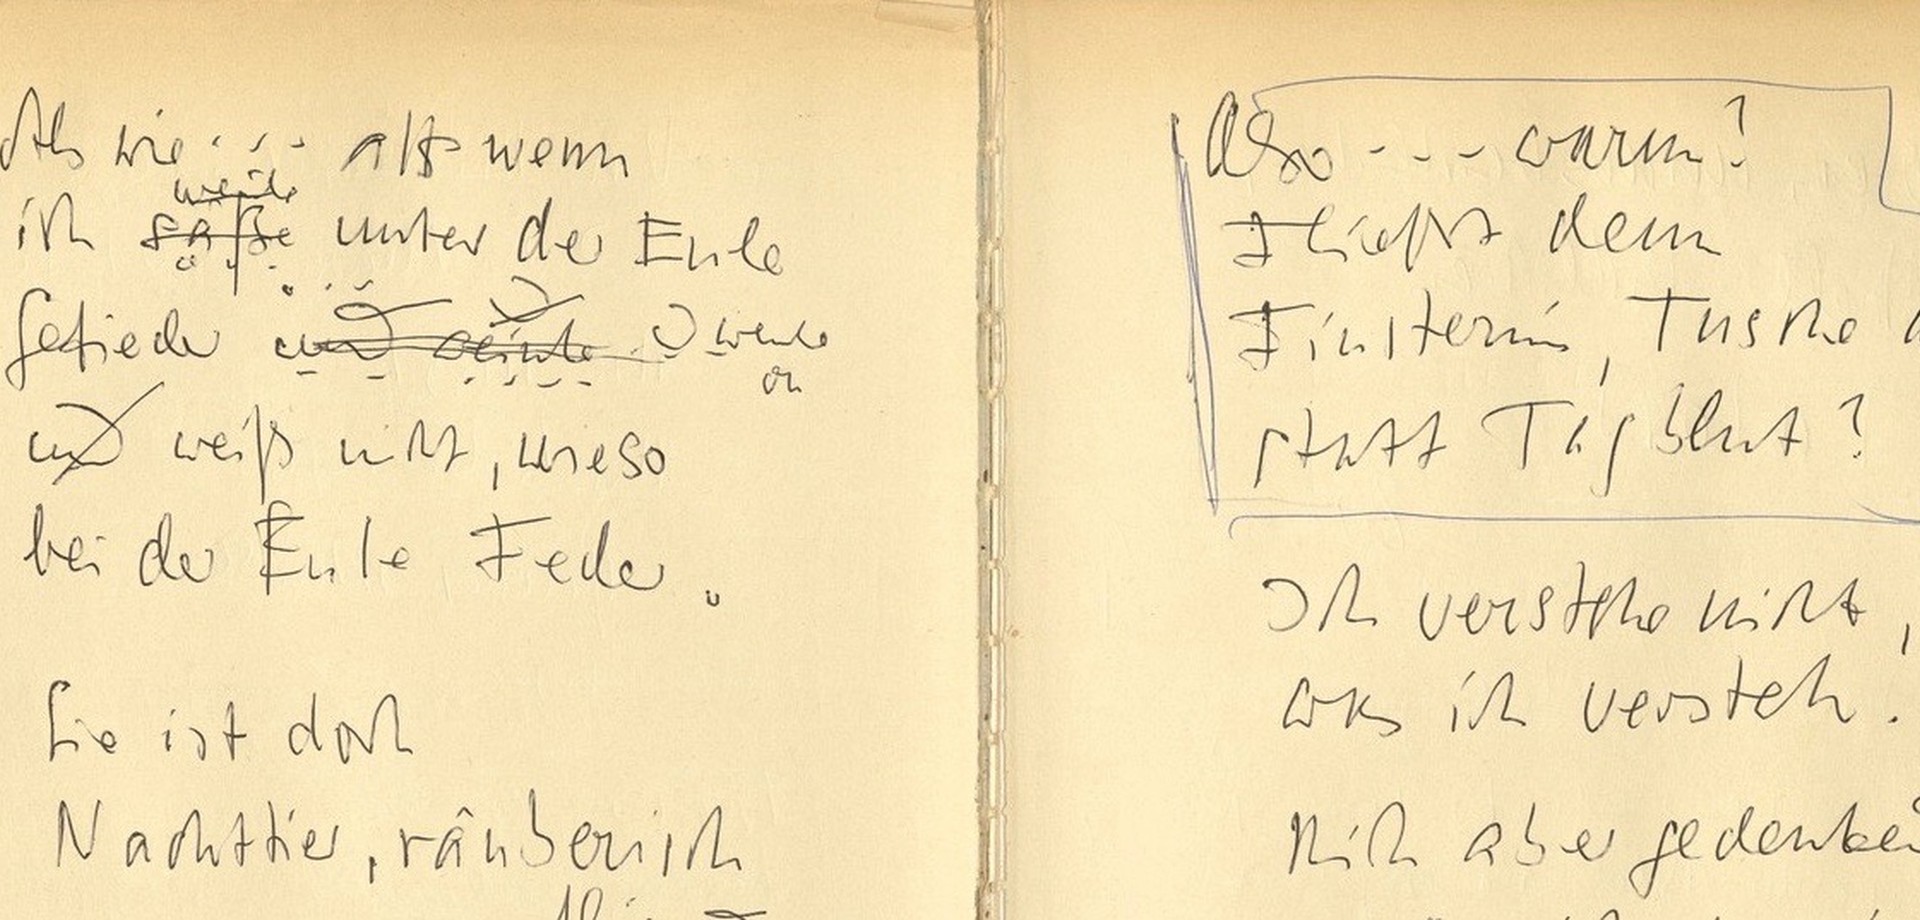 Als wie . . . . als wenn
weile
ich säße unter der Eule
Gefieder und weinte weine
on
und weiß nicht, wieso
bei der Eule Feder.
Sie ist doch
Nachttier, räuberisch
Also - - - warum?
Fließt denn
Finsternis, Tusche
statt Tagblut?
Ich verstehe nicht,
was ich versteh.
Mich aber gedenken